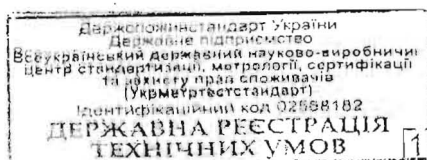 Держспоживстандарт України
Державне підприємство
Всеукраїнський державний науково-виробничий
центр стандартизації, метрології, сертифікації
та захисту прав споживачів
(Укрметртестстандарт)
Ідентифікаційний код 02568182
ДЕРЖАВНА РЕЄСТРАЦІЯ
ТЕХНІЧНИХ УМОВ
1